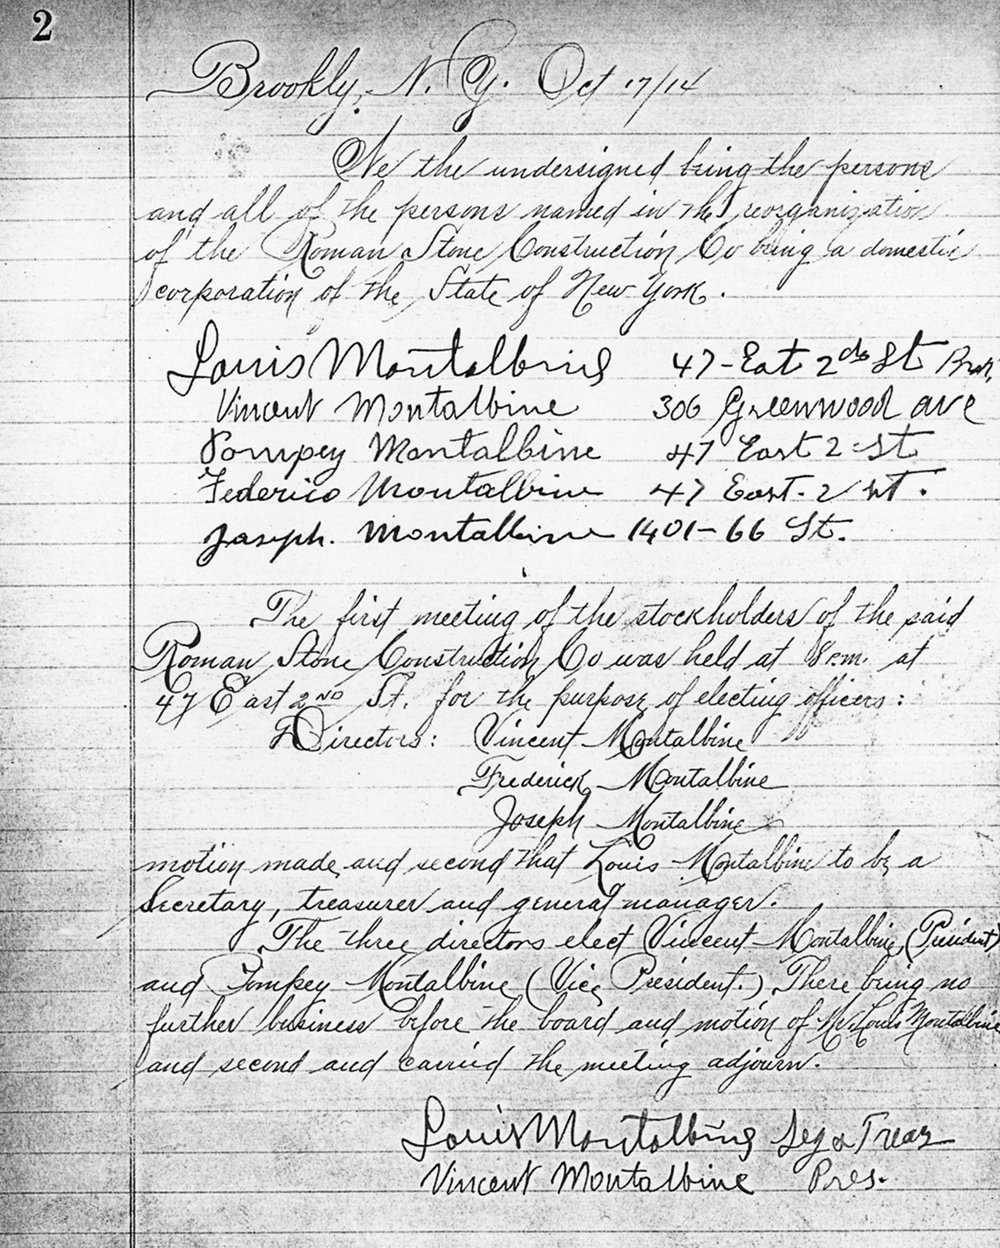 2
Brookly, N.Y. Oct 17/14
We the undersigned being the persons
and all of the persons named in the reorganization
of the Roman Stone Construction Co being a domestic
corporation of the State of New York.
Louis Montalbine 47-East 2nd St
Vincent Montalbine 306 Greenwood ave
Pompey Montalbine 47 East 2 St
Federico Montalbine 47 East-2 st.
Joseph. Montalbine 1401-66 St.
The first meeting of the stockholders of the said
Roman Stone Construction Co was held at 8 P.M. at
47 East 2ND St. for the purpose of electing officers:
Directors: Vincent Montalbine
Frederick Montalbine
Joseph Montalbine
motion made and second that Louis Montalbine to be a
Secretary, treasurer and general manager.
The three directors elect Vincent Montalbine (President)
and Pompey Montalbine (Vice President.) There being no
further business before the board and motion of Mr. Louis Montalbine
and second and carried the meeting adjourn.
Louis Montalbine Secy & Treas
Vincent Montalbine Pres.